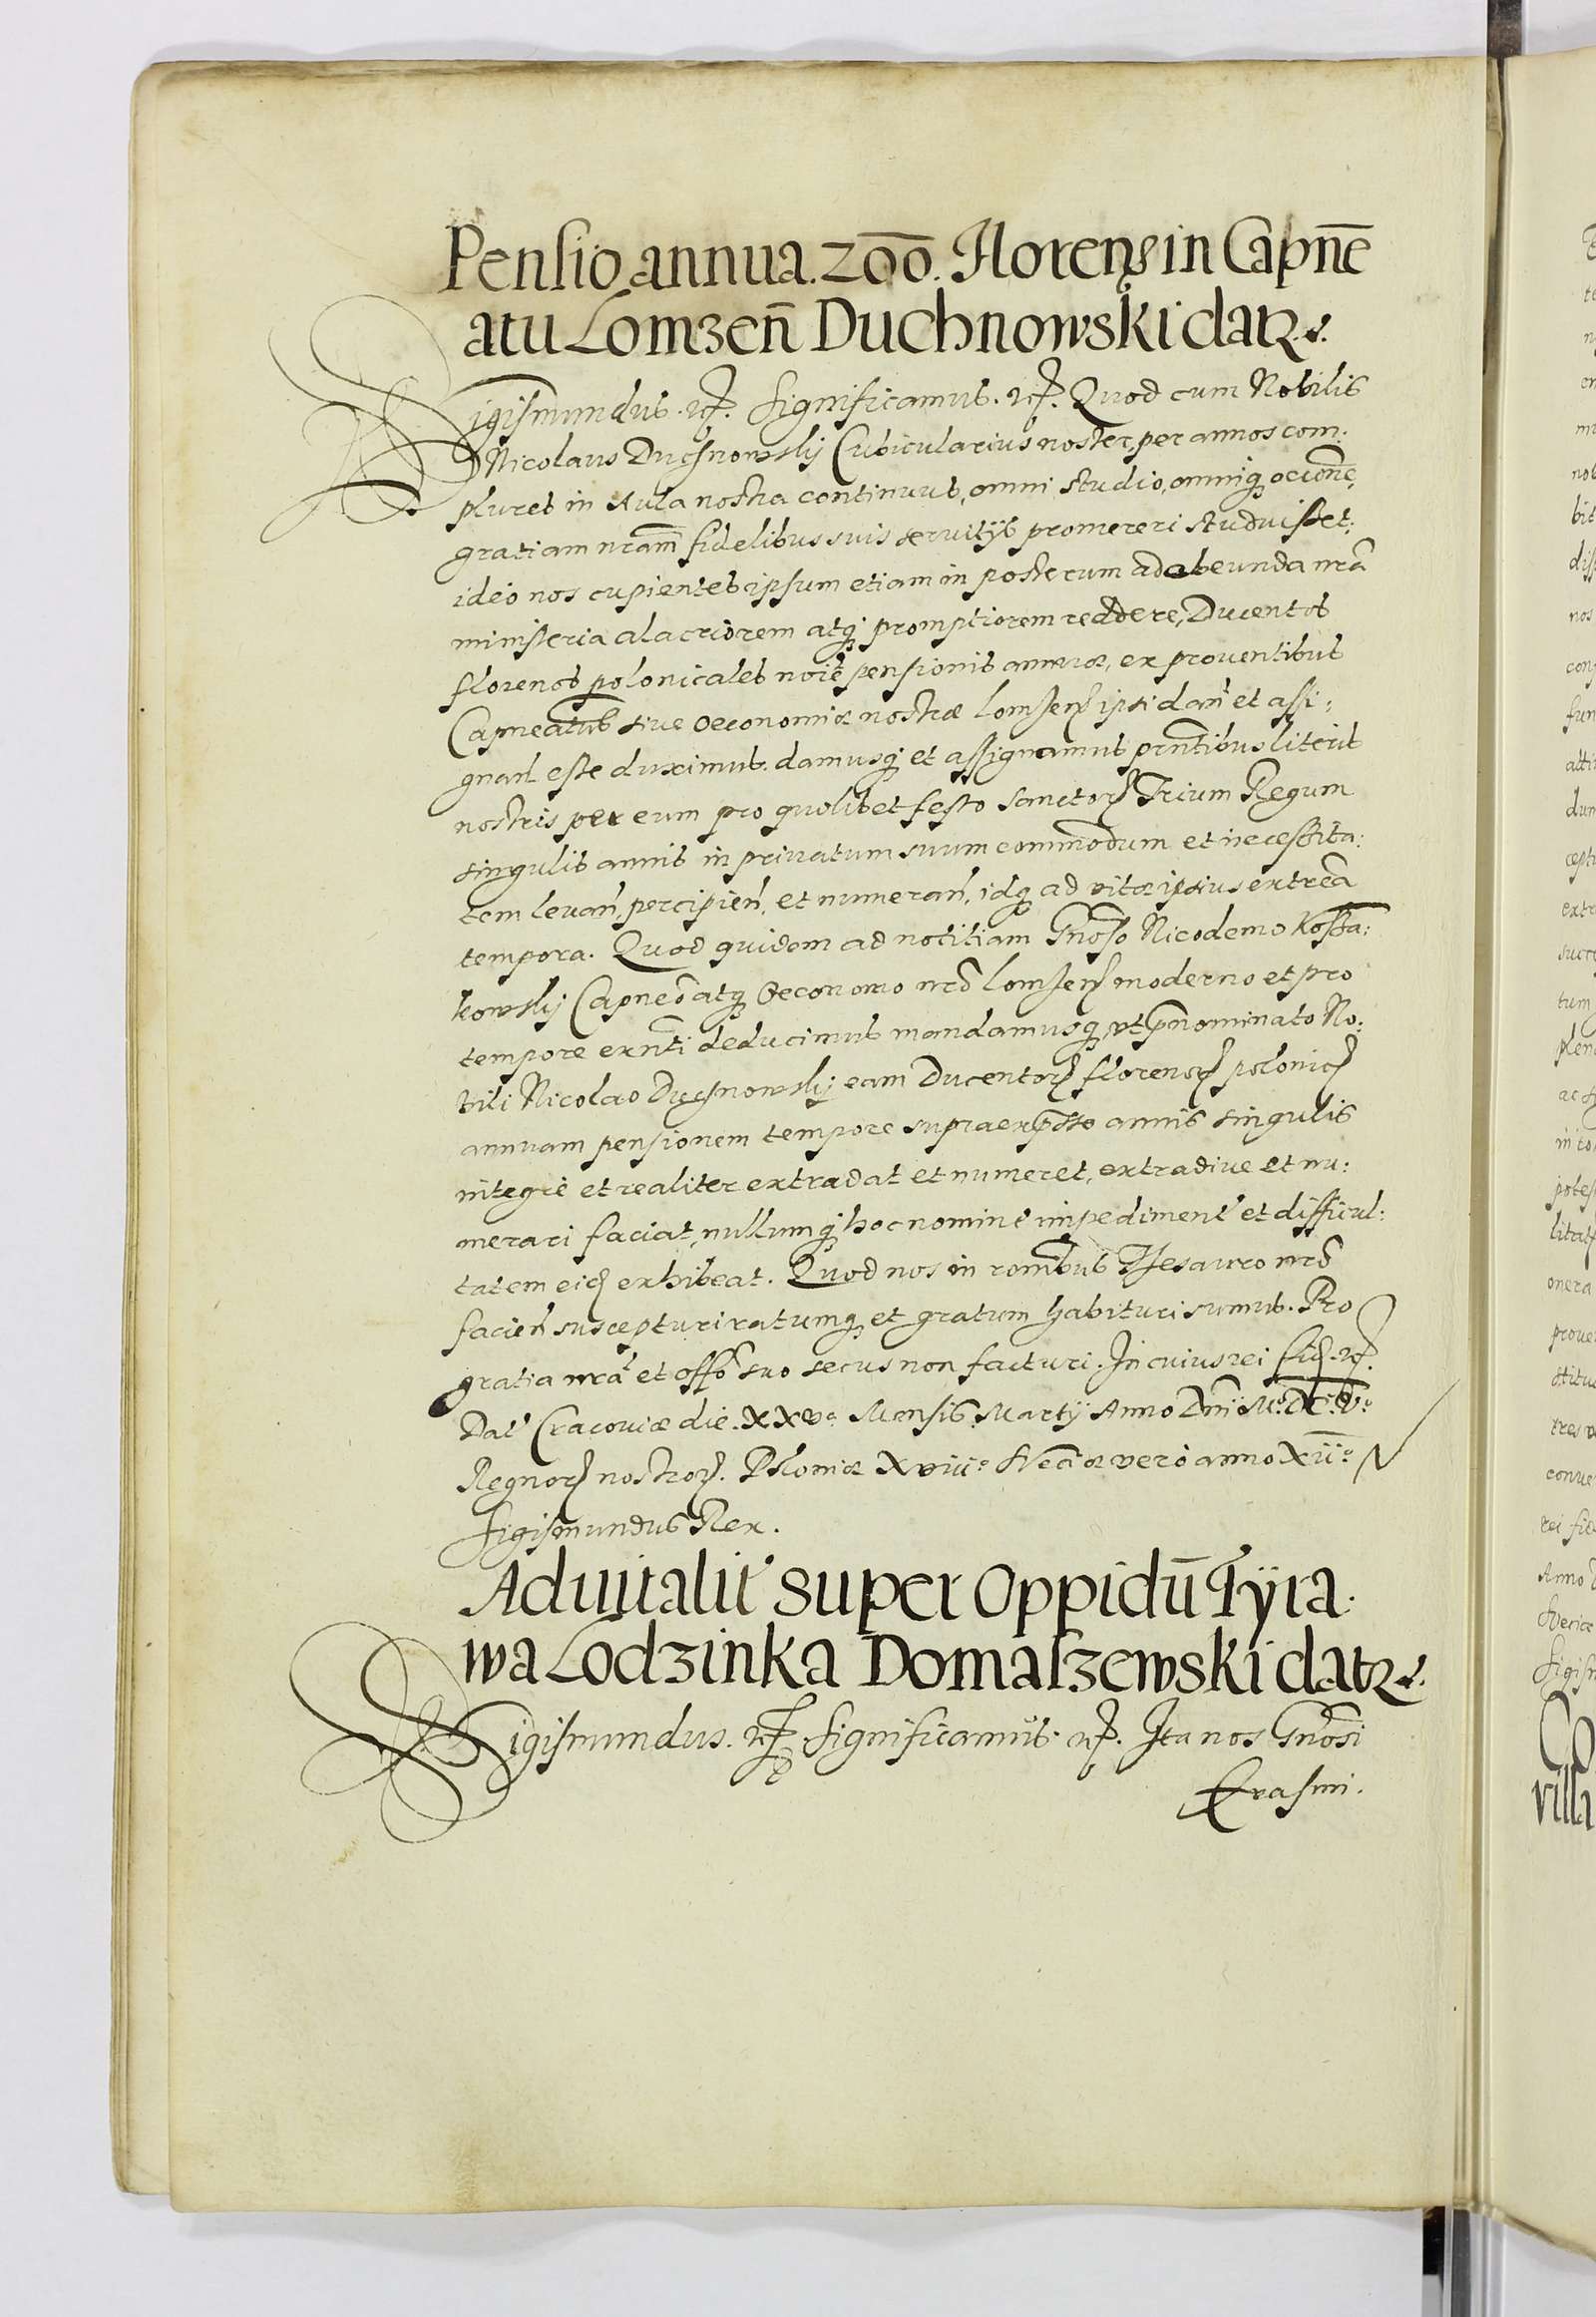 Pensio annua. 200. Floren͂ in Capnē
atu Lomzen̄ Duchnowski datꝛ.
Sigismundus. etc. Significamus. etc. Quod cum Nobilis
Nicolaus Duchnowskij Cubicularius noster, per annos com:
plures in Aula nostra continuus, omni studio, omniq̨ oc͠ione,
gratiam nr͠am fidelibus suis servitijs promereri studuisset:
ideo nos cupientes ipsum etiam in posterum ad obeunda nr͠a
ministeria alacriorem atq̨ promptiorem reddere, Ducentos
florenos polonicales noi͠e pensionis annuæ, ex prouentibus
Capneatus siue oeconomiæ nostræ Lomzen̄ ipsi dan̄ et assi:
gnan̄ esse duximus. damusq̨ et assignamus pr͠ntibus literis
nostris per eum pro quolibet festo Sanctorꝝ Trium Regum
singulis annis in priuatum suum commodum et necessita:
tem leuan̄, percipien̄, et numeran̄, idq̨ ad vitæ ipsius extre͠a
tempora. Quod quidem ad notitiam Gn͠oso Nicodemo Kossa:
kowskij Capneo͠ atq̨ Oeconomo nr͠o Lomzen̄ moderno et pro
tempore exn͠ti deducimus mandamusq̨ vt p͠nominato No:
bili Nicolao Duchnowskij eam Ducentorꝝ florenorꝝ polonic̄
annuam pensionem tempore supraexp͠sso annis singulis
integrè et realiter extradat et numeret, extradiue et nu:
merari faciat, nullumq̨ hoc nomine impediment̄ et difficul:
tatem eid̄ exhibeat. Quod nos in ro͠nibus Thesauro nr͠o
facien̄ suscepturi ratumq̨ et gratum habituri sumus. Pro
gratia nr͠a et off͠o suo secus non facturi. In cuius rei fid̄. etc.
Dat̄ Cracouiæ die. XXvᵒ Mensis Martij Anno Dn͠i Mᵒ. DCᵒ. Vᵒ
Regnorꝝ nostrorꝝ. Poloniæ Xviiiᵒ Sveciæ verò anno XIIᵒ
Sigismundus Rex.
Aduitalit̄ super Oppidū Tÿra:
wa Lodzinka Domaszewski datꝛ.
Sigismundus. etc. Significamus. etc. Ita nos Gn͠osi
Erasmi.